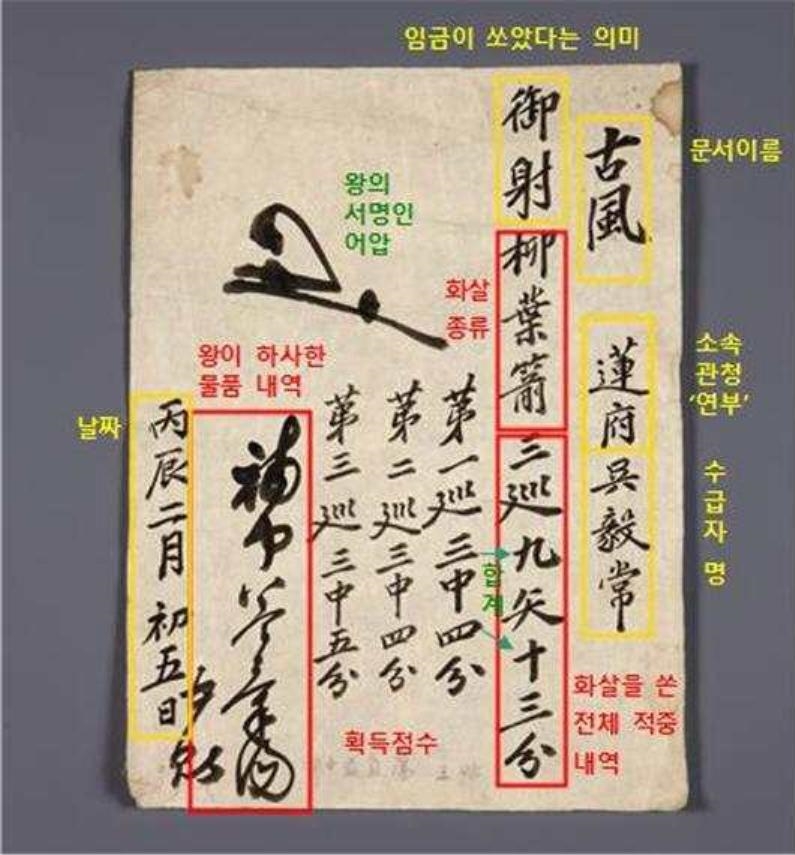 임금이 쏘았다는 의미
문서이름
古風
소속
관청
'연부'
수급자 명
蓮府吳毅常
御射柳葉箭三巡九矢十三分
화살
종류
합계
화살을 쏜
전체 적중
내역
第一巡三中四分
第二巡三中四分
第三巡三中五分
획득점수
왕의
서명인
어압
왕이 하사한
물품 내역
날짜
丙辰二月初五日